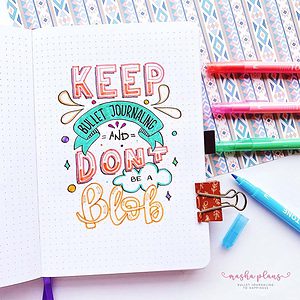 KEEP
BULLET JOURNALING
AND
DON'T
BE A
Blob
masha plans
BULLET JOURNALING
TO HAPPINESS